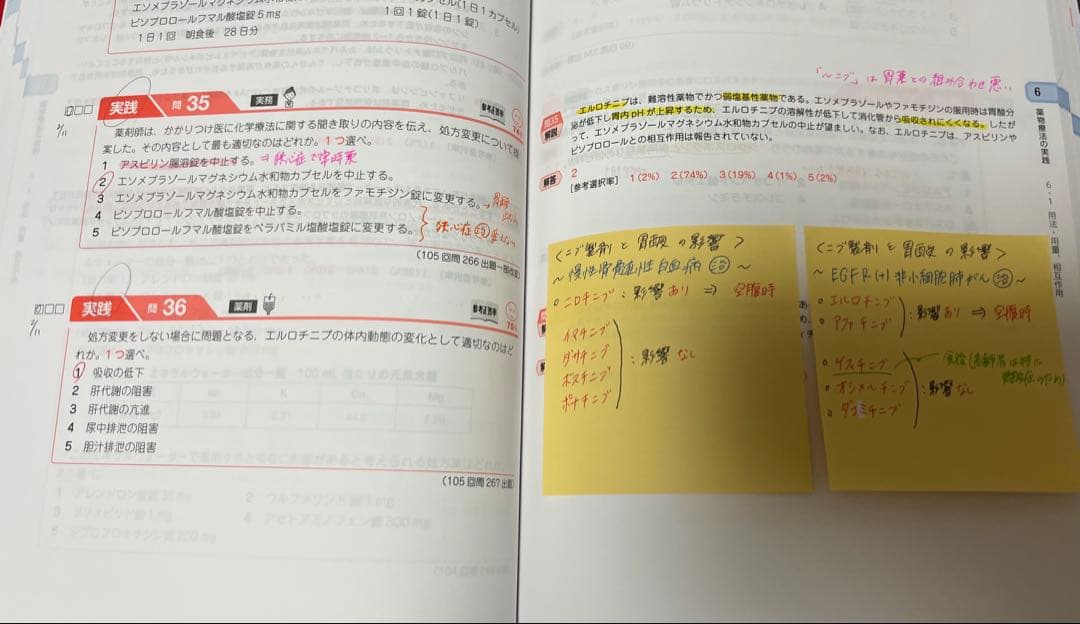 エソメプラゾールマグネシウム水和物カプセル(1日1カプセル)
ビソプロロールフマル酸塩錠5mg 1回1錠(1日1錠)
1日1回 朝食後 28日分
実践 問35 実務
参考正答率 74%
薬剤師は、かかりつけ医に化学療法に関する聞き取りの内容を伝え、処方変更について提
案した。その内容として最も適切なのはどれか。1つ選べ。
1 アスピリン腸溶錠を中止する。⇒狭心症で常時薬
2 エソメプラゾールマグネシウム水和物カプセルを中止する。
3 エソメプラゾールマグネシウム水和物カプセルをファモチジン錠に変更する。
4 ビソプロロールフマル酸塩錠を中止する。
5 ビソプロロールフマル酸塩錠をベラパミル塩酸塩錠に変更する。
狭心症 治
(105回問266出題一部改変)
実践 問36 薬剤
参考正答率
処方変更をしない場合に問題となる、エルロチニブの体内動態の変化として適切なのはど
れか。1つ選べ。
1 吸収の低下
2 肝代謝の阻害
3 肝代謝の亢進
4 尿中排泄の阻害
5 胆汁排泄の阻害
(105回問267出題)
「〜ニブ」は胃薬との組み合わせ悪い
問35
解説
エルロチニブは、難溶性薬物でかつ弱塩基性薬物である。エソメプラゾールやファモチジンの服用時は胃酸分
泌が低下し胃内pHが上昇するため、エルロチニブの溶解性が低下して消化管から吸収されにくくなる。したが
って、エソメプラゾールマグネシウム水和物カプセルの中止が望ましい。なお、エルロチニブは、アスピリンや
ビソプロロールとの相互作用は報告されていない。
解答 2
[参考選択率] 1(2%) 2(74%) 3(19%) 4(1%) 5(2%)
6
薬物療法の実践
6・1 用法・用量、相互作用
<ニブ製剤と胃酸の影響>
〜慢性骨髄性白血病 治〜
○ニロチニブ:影響あり ⇒ 空腹時
イマチニブ
ダサチニブ
ボスチニブ
ポナチニブ
:影響なし
<ニブ製剤と胃酸の影響>
〜EGFR(+)非小細胞肺がん 治〜
○エルロチニブ
○アファチニブ
:影響あり ⇒ 空腹時
○ゲフィチニブ
○オシメルチニブ
○ダコミチニブ
:影響なし
食後(高齢者は特に無酸症のため)